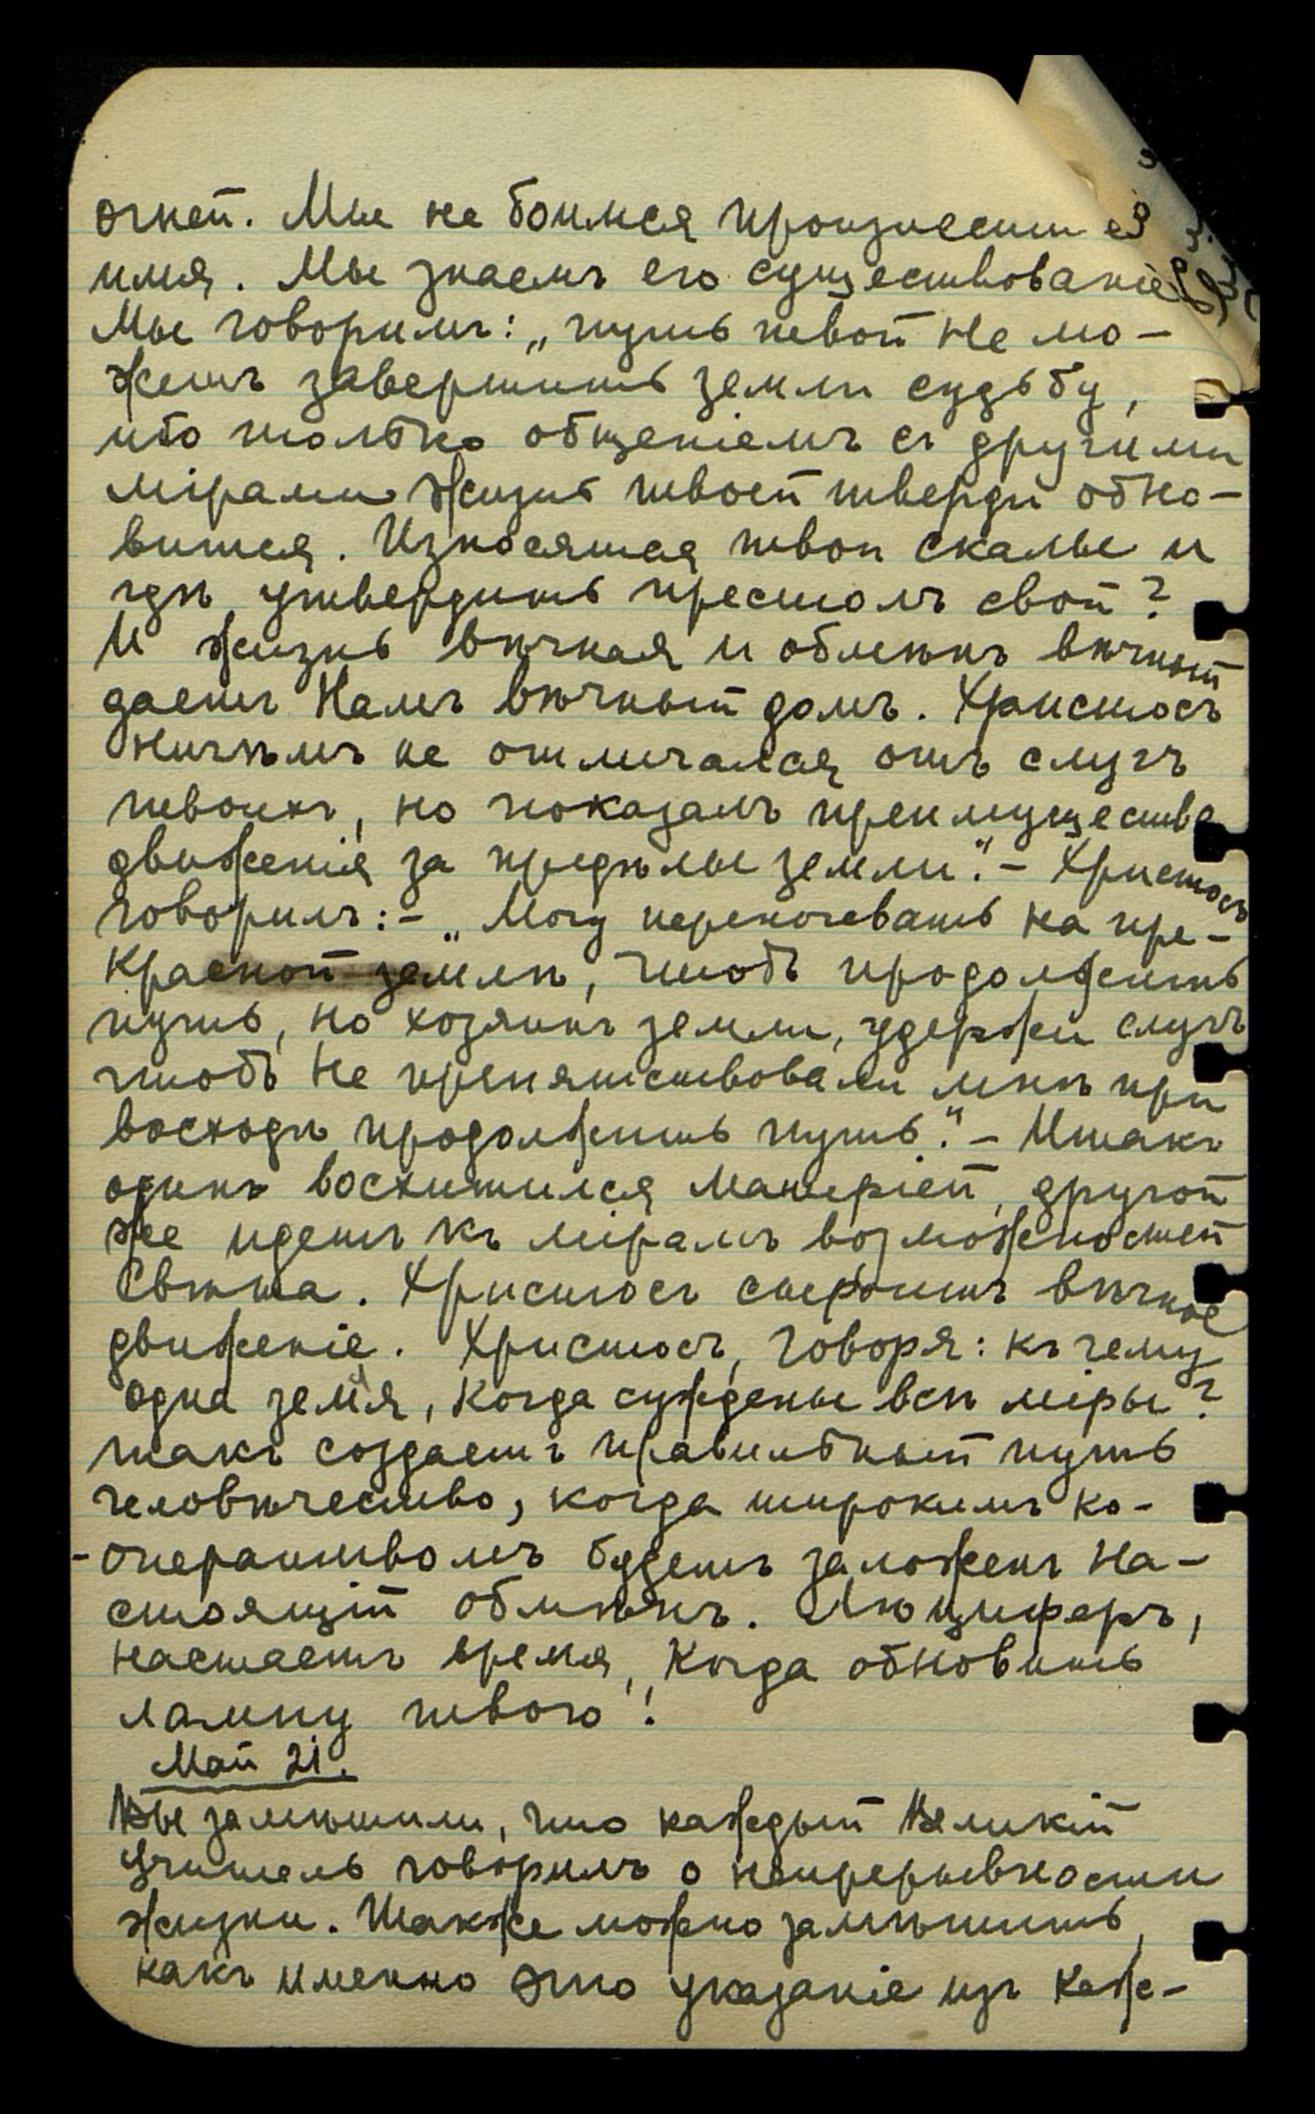 огней. Мы не боимся произнести е
имя. Мы знаемъ его существованіе
Мы говоримъ: „путь твой не мо-
жетъ завершить земли судьбу,
ибо только общеніемъ съ другими
мірами жизнь твоей тверди обно-
вится. Износятся твои скалы и
гдѣ утвердишь престолъ свой?
И жизнь вѣчная и обмѣнъ вѣчный
даетъ Намъ вѣчный домъ. Христосъ
ничѣмъ не отличался отъ слугъ
твоихъ, но показалъ преимущества
движенія за предѣлы земли." - Христосъ
говорилъ: - „Могу переночевать на пре-
красной землѣ, чтобъ продолжить
путь, но хозяинъ земли, удержи слугъ
чтобъ не препятствовали мнѣ при
восходѣ продолжить путь." - Итакъ
одинъ восхитился матеріей, другой
же идетъ къ мірамъ возможностей
Свѣта. Христосъ смотритъ вѣчное
движеніе. Христосъ, говоря: къ чему
одна земля, когда суждены всѣ міры?
такъ создаетъ правильный путь
человѣчество, когда широкимъ ко-
-оператівомъ будетъ заложенъ на-
стоящій обмѣнъ. Люциферъ,
настаетъ время, когда обновить
лампу твою!
Май 21.
Вы замѣтили, что каждый Великій
Учитель говорилъ о непрерывности
жизни. Также можно замѣтить,
какъ именно это указаніе изъ каж-